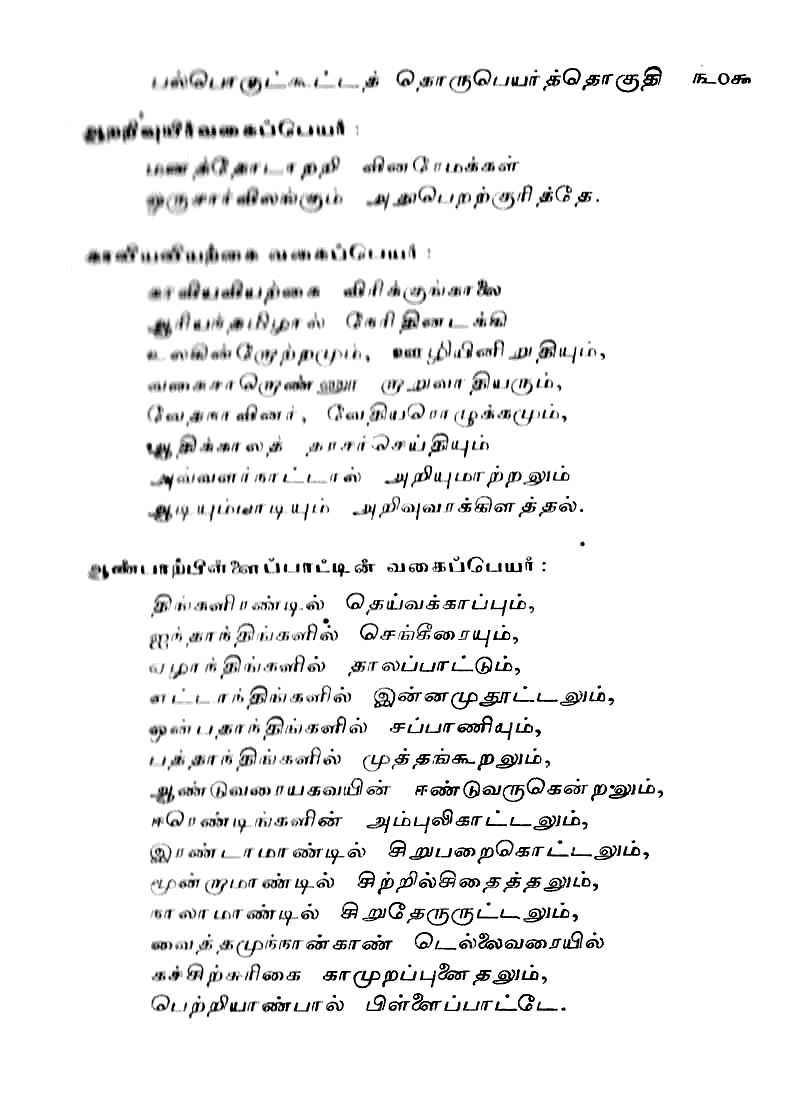 பல்பொருட்கூட்டத் தொருபெயர்த்தொகுதி ௩௨௦௯
ஆறறிவுயிர்வகைப்பெயர் :
மனத்தோடாறறி வினரேமக்கள்
ஒருசார்விலங்கும் அதுபெறற்குரித்தே.
காவியவியற்கை வகைப்பெயர் :
காவியவியற்கை விரிக்குங்காலை
ஆரியந்தமிழால் நேரிதினடக்கி
உலகின்றோற்றமும், ஊழியினிறுதியும்,
வகைசாறொண்ணூ றூறுவாதியரும்,
வேதநாவினர், வேதியரொழுக்கமும்,
ஆதிக்காலத் தரசர்செய்தியும்
அவ்வளர்நாட்டால் அறியுமாற்றலும்
ஆடியும்பாடியும் அறிவுவரக்கிளத்தல்.
ஆண்பாற்பிள்ளைப்பாட்டின் வகைப்பெயர் :
திங்களிரண்டில் தெய்வக்காப்பும்,
ஐந்தாந்திங்களில் செங்கீரையும்,
ஏழாந்திங்களில் தாலப்பாட்டும்,
எட்டாந்திங்களில் இன்னமுதூட்டலும்,
ஒன்பதாந்திங்களில் சப்பாணியும்,
பத்தாந்திங்களில் முத்தங்கூறலும்,
ஆண்டுவரையகவயின் ஈண்டுவருகென்றலும்,
ஈரொண்டிங்களின் அம்புலிகாட்டலும்,
இரண்டாமாண்டில் சிறுபறைகொட்டலும்,
மூன்றாமாண்டில் சிற்றில்சிதைத்தலும்,
நாலாமாண்டில் சிறுதேருருட்டலும்,
வைத்தமுந்நான்காண் டெல்லைவரையில்
கச்சிற்சுரிகை காமுறப்புனைதலும்,
பெற்றியாண்பால் பிள்ளைப்பாட்டே.